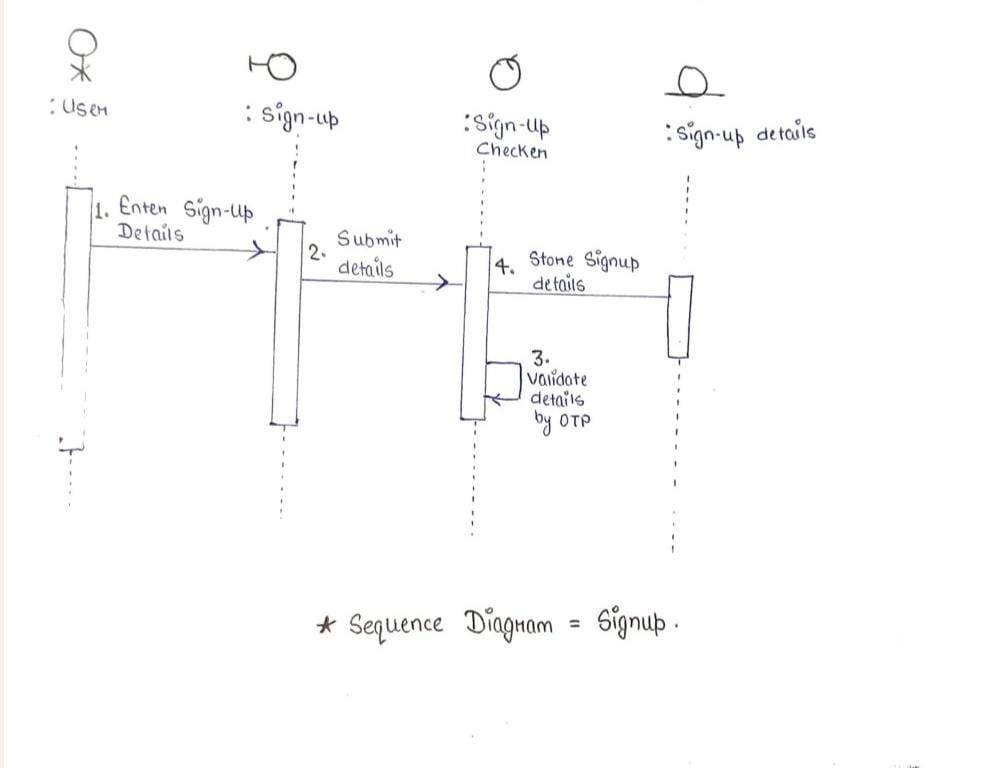 : User
: Sign-up
: Sign-Up
Checker
: Sign-up details
1. Enter Sign-Up
Details
2. Submit
details
4. Store Signup
details
3.
Validate
details
by OTP
* Sequence Diagram = Signup.